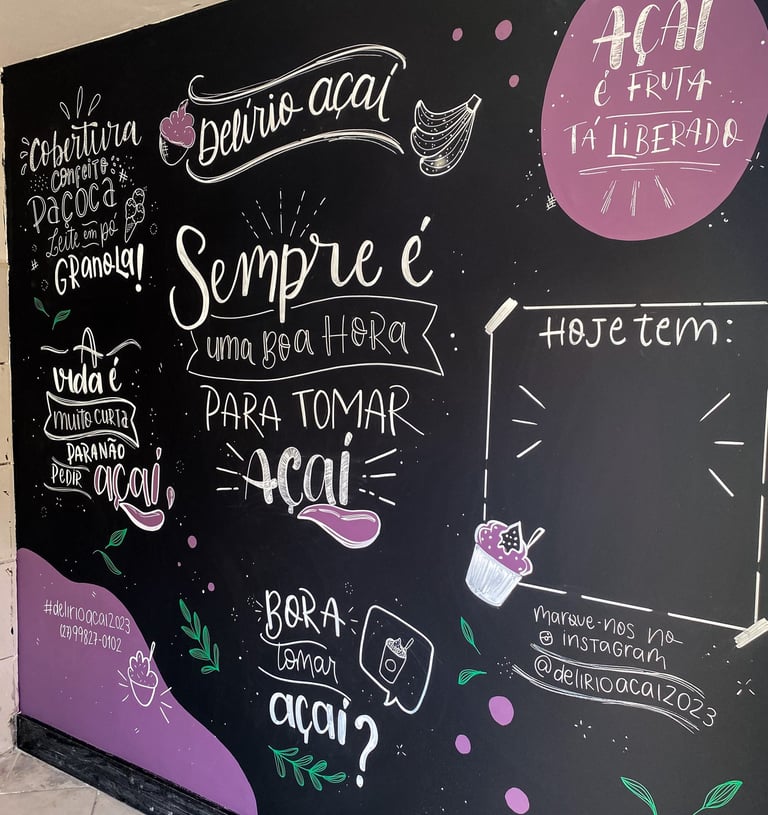 Cobertura
confeito
Paçoca
Leite em pó
Granola!
Delírio açaí
AÇAÍ
é FRUTA
TÁ LIBERADO
Sempre é
uma BOA HORA
PARA TOMAR
AÇAÍ
HOJE tem:
A
vida é
muito curta
PARA NÃO
PEDIR açaí
#delirioacai2023
(27) 99827-0102
BORA
tomar
açaí?
marque-nos no
instagram
@delirioacai2023